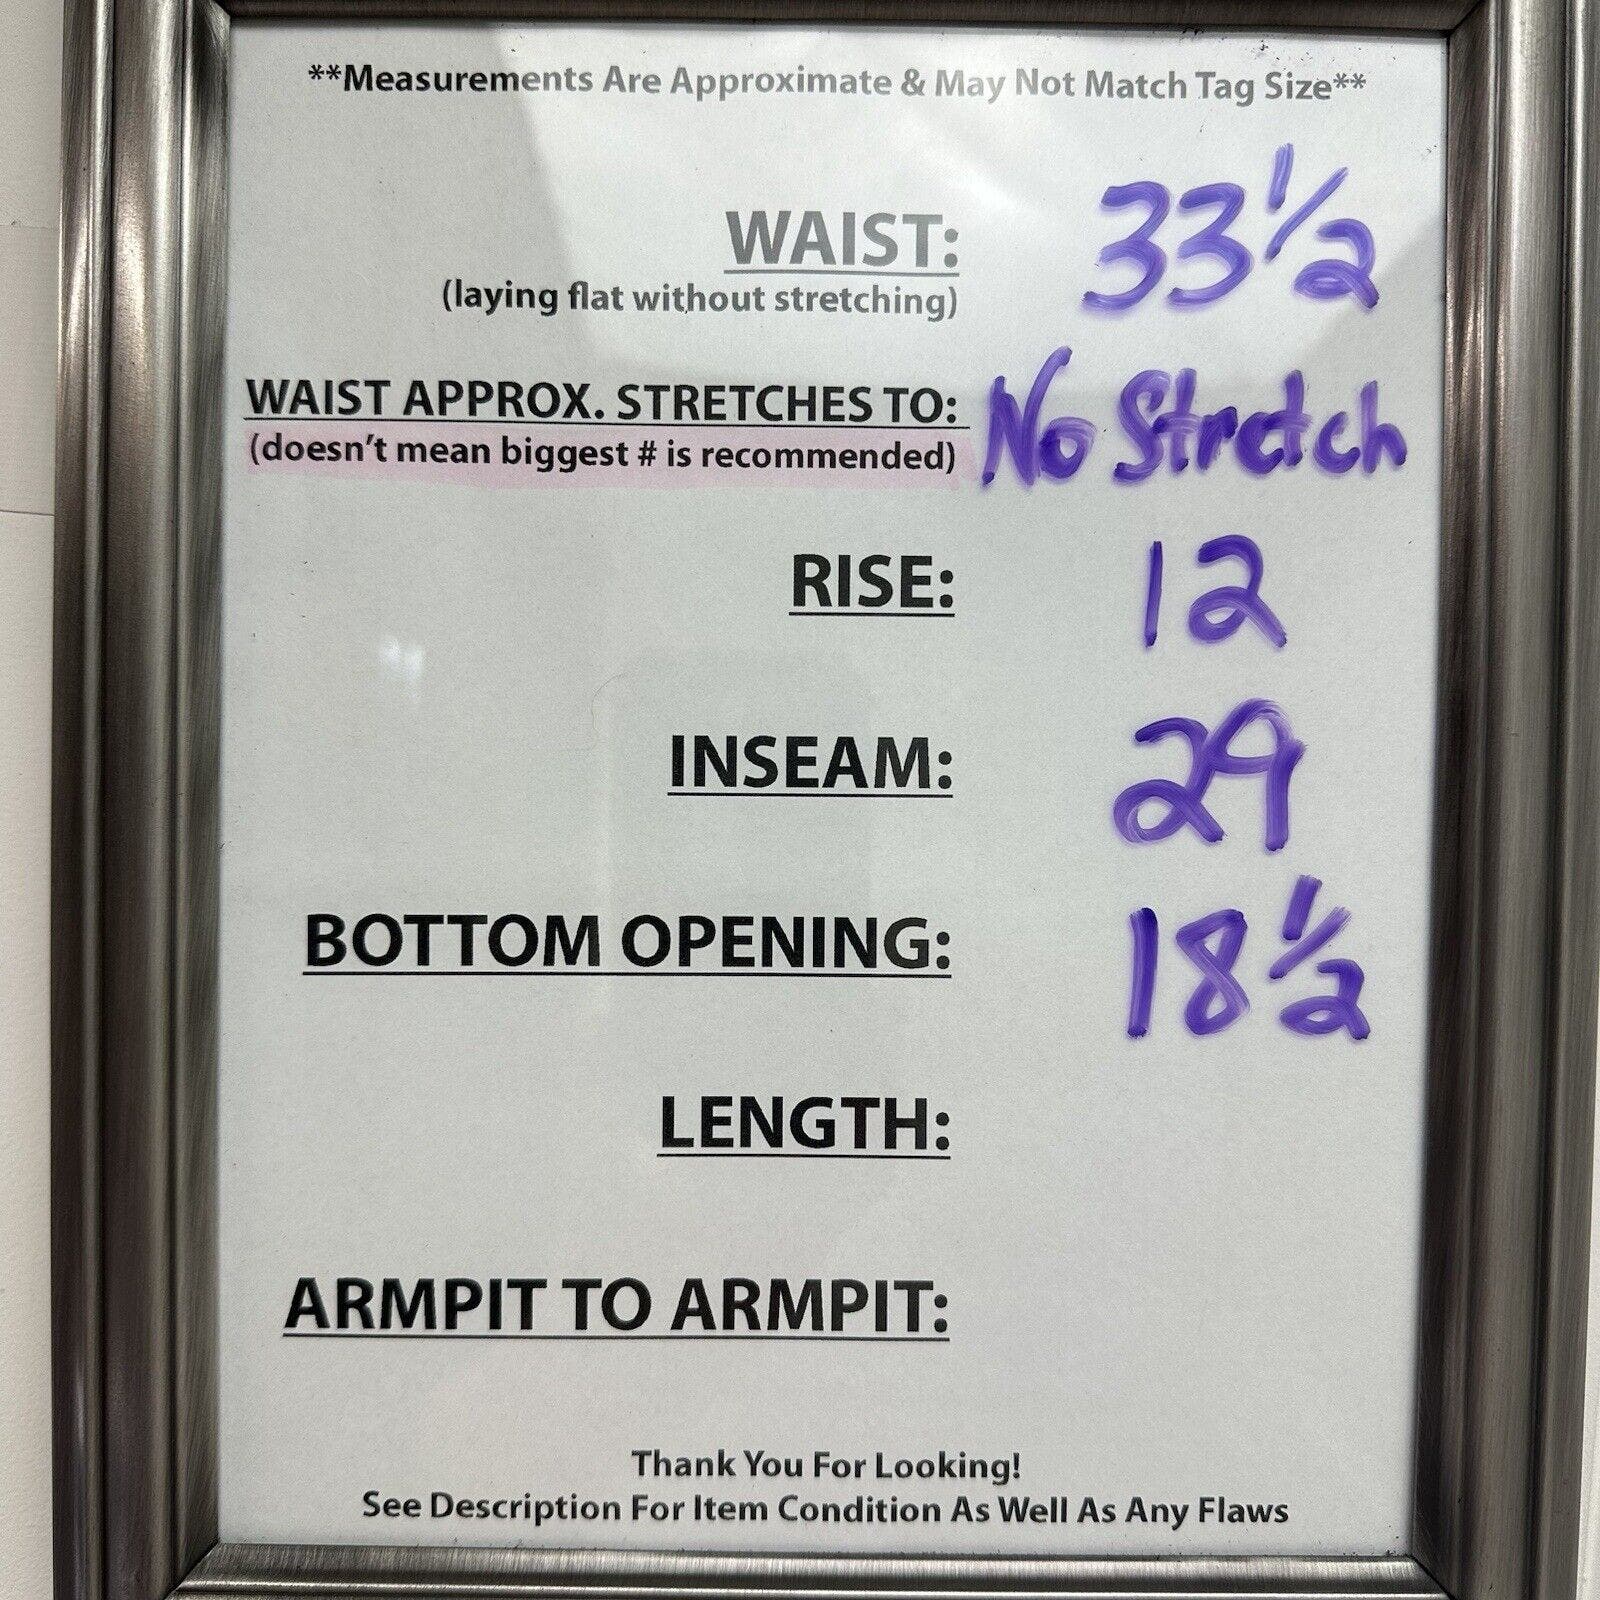 **Measurements Are Approximate & May Not Match Tag Size**
WAIST: 33 1/2
(laying flat without stretching)
WAIST APPROX. STRETCHES TO: No Stretch
(doesn't mean biggest # is recommended)
RISE: 12
INSEAM: 29
BOTTOM OPENING: 18 1/2
LENGTH:
ARMPIT TO ARMPIT:
Thank You For Looking!
See Description For Item Condition As Well As Any Flaws